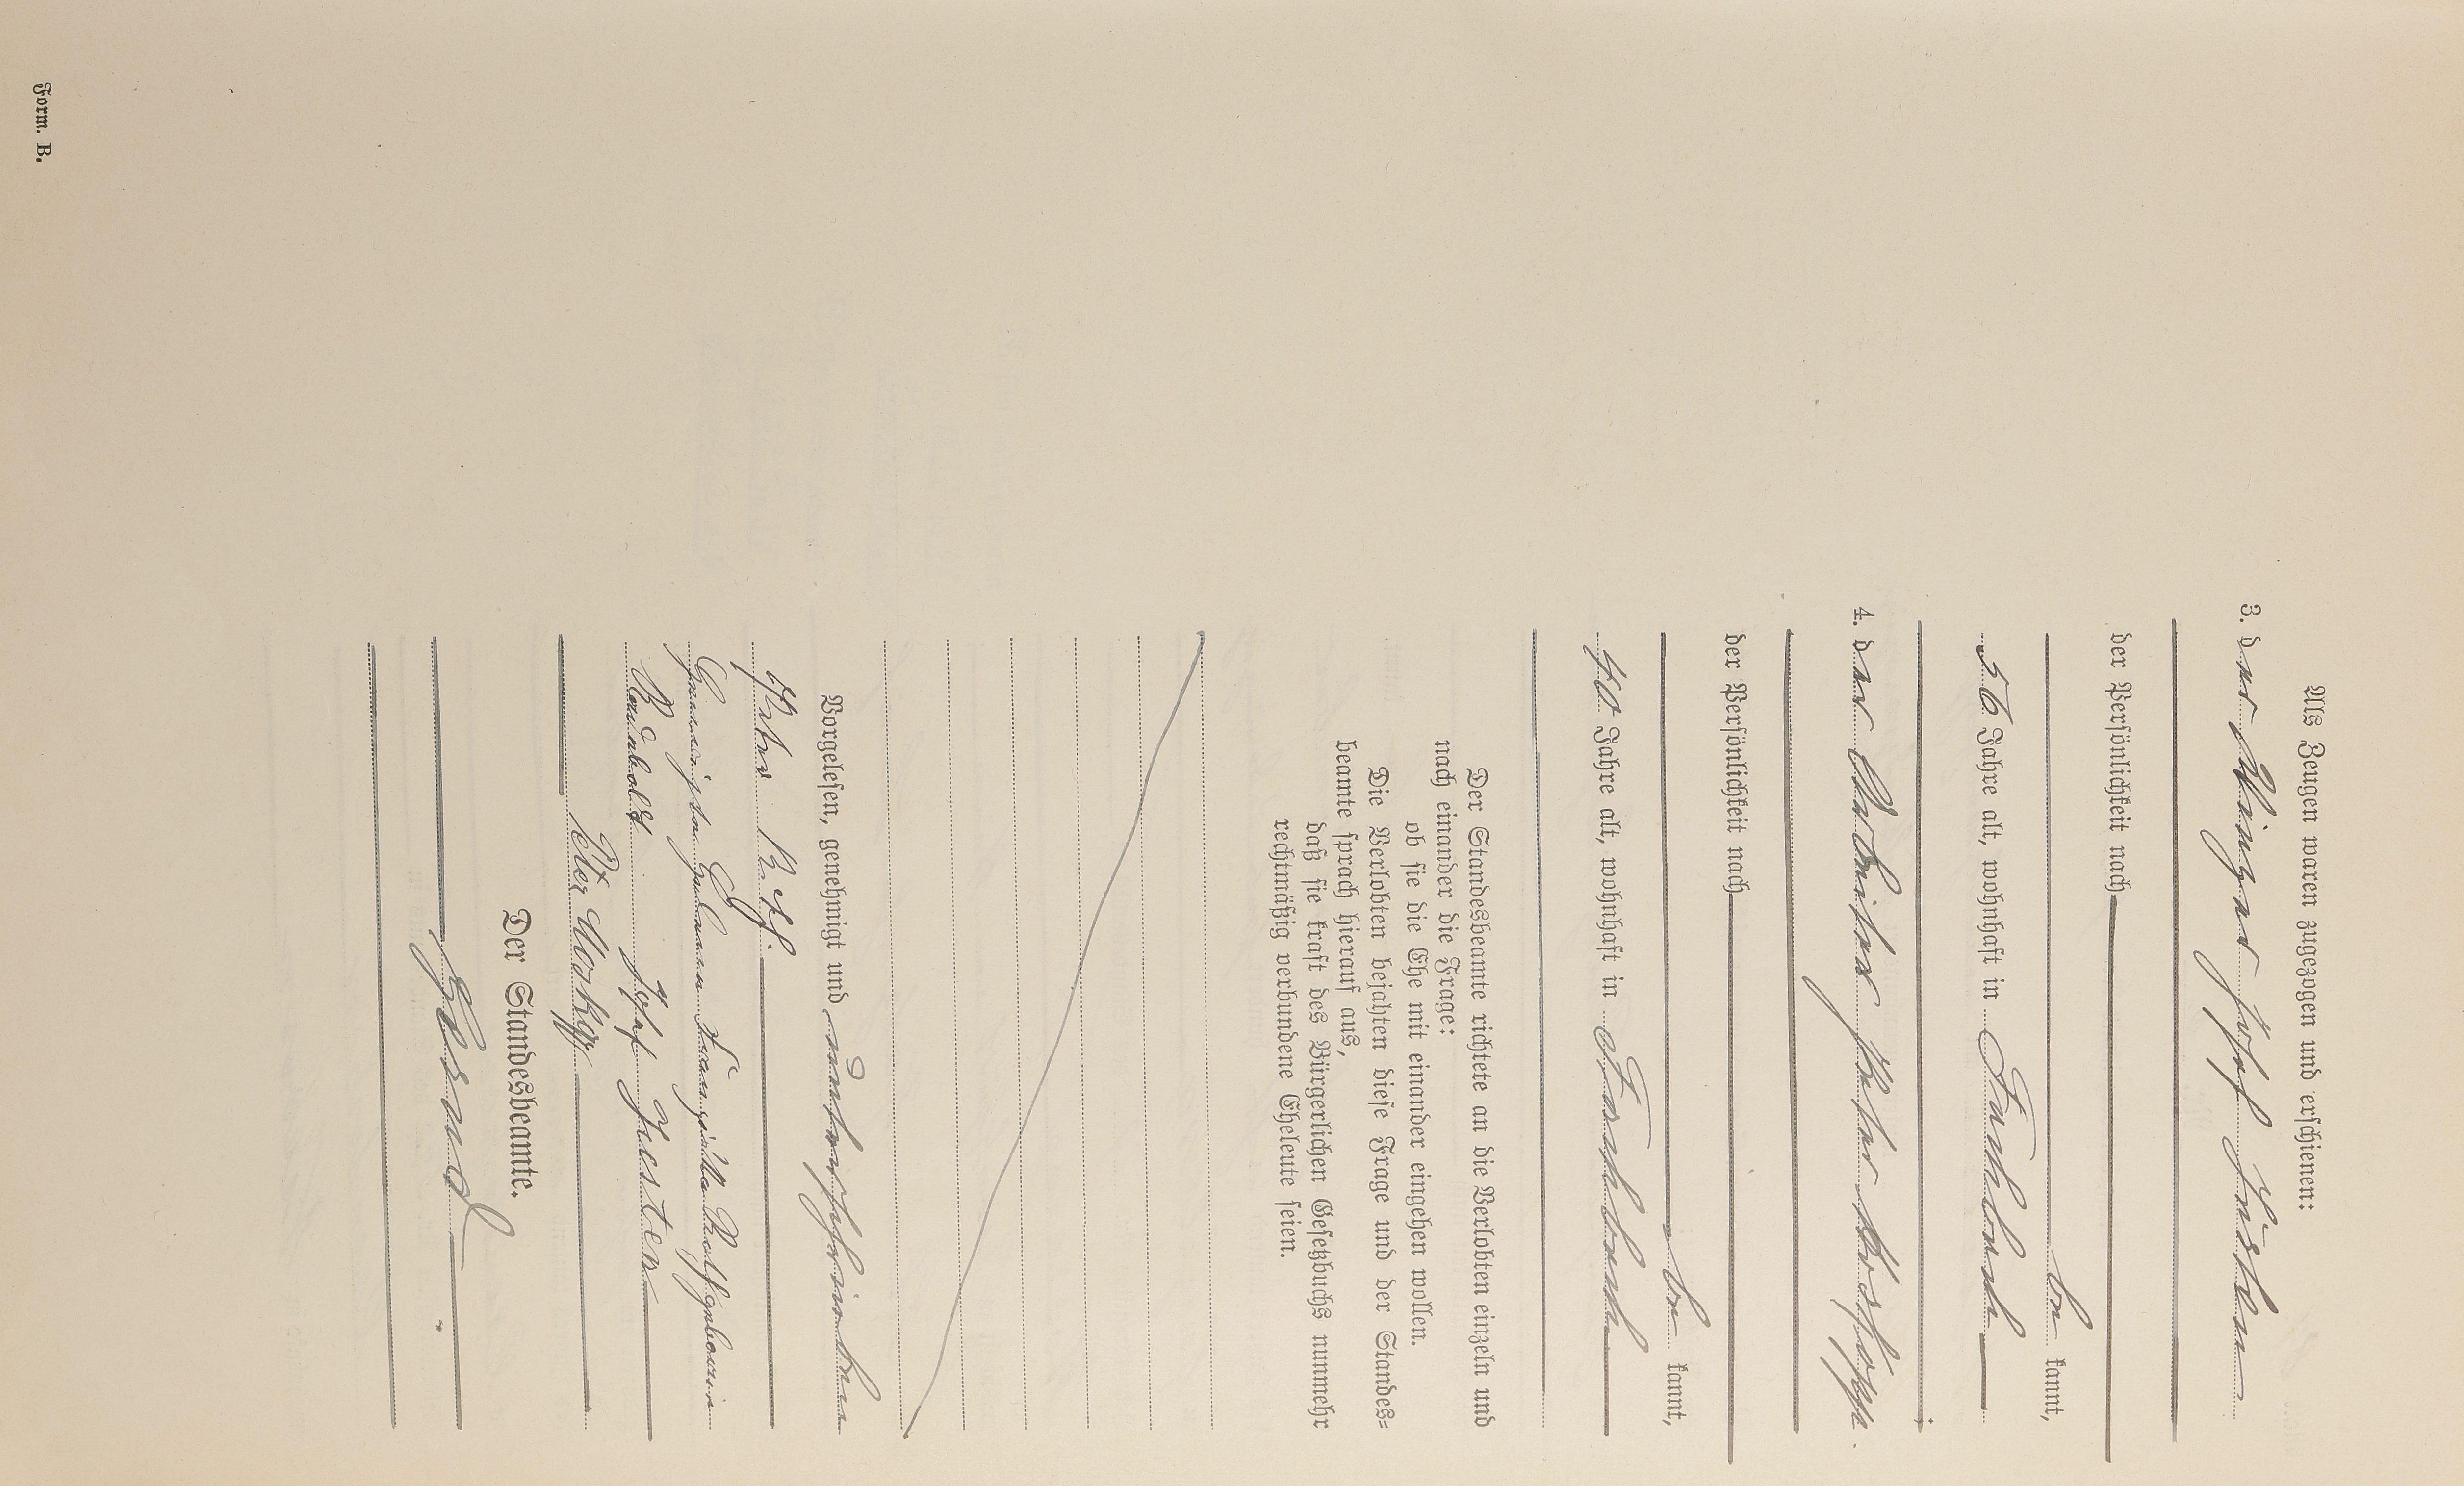 Als Zeugen waren zugezogen und erschienen:
3. der Winzer Josef Justen
der Persönlichkeit nach
be kannt,
56 Jahre alt, wohnhaft in
4. der Arbeiter Peter
der Persönlichkeit nach
be kannt,
40 Jahre alt, wohnhaft in
Der Standesbeamte richtete an die Verlobten einzeln und
nach einander die Frage:
ob sie die Ehe mit einander eingehen wollen.
Die Verlobten bejahten diese Frage und der Standes=
beamte sprach hierauf aus,
daß sie kraft des Bürgerlichen Gesetzbuchs nunmehr
rechtmäßig verbundene Eheleute seien.
Vorgelesen, genehmigt und unterschrieben
Peter
geborene
Josef Justen
Peter
Der Standesbeamte.
Form. B.